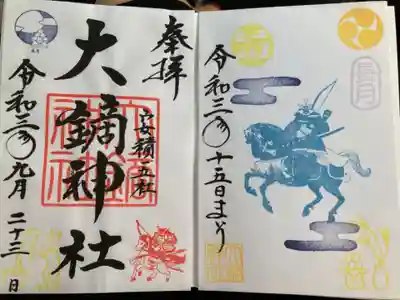 長月
令和三年 十五日まいり
奉拝
安積
大鏑神社
令和三年九月二十三日